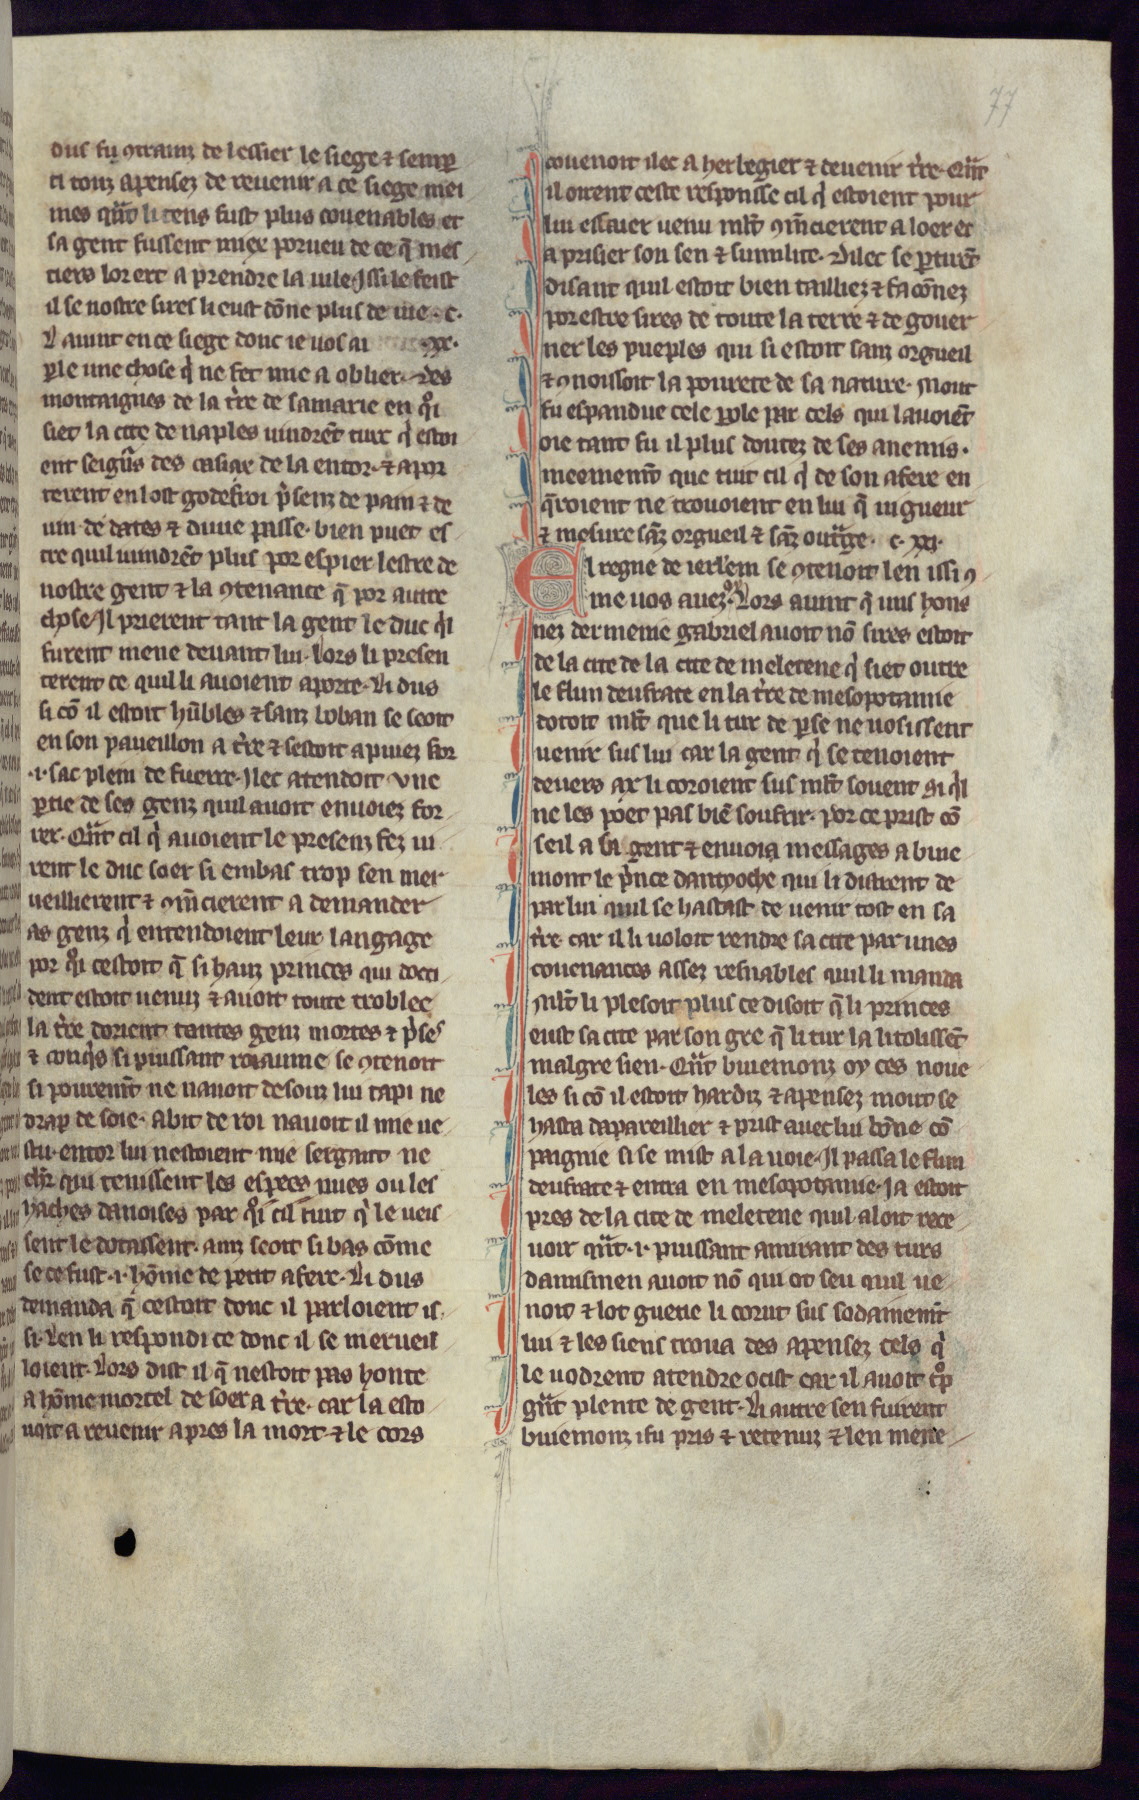 77
dus fu ꝯtrainz de lessier le siege ⁊ semp̱
ti touz apensez de reuenir a ce siege mei
mes qñt li tens fust plus couenables et
sa gent fussent miex porueu de ce q̄ mes
tiers lor ert a prendre la uile. Issi le feist
il se nostre sires li eust dōne plus de uie. c.
Auint en ce siege donc ie uos ai xx.
ꝑle une chose q̇ ne fet mie a oblier. Des
montaignes de la t̄re de samarie en q̊i
siet la cite de naples uindrēt turc q̇ estoi
ent seign̄s des casiax de la entor. ⁊ apor
terent en lost godefroi p̄senz de pain ⁊ de
uin. de dates ⁊ duue passe. bien puet es
tre quil uindrēt plus por espier lestre de
nostre gent ⁊ la ꝯtenance q̄ por autre
chose. Il prierent tant la gent le duc q̇l
furent mene deuant lui. Lors li presen
terent ce quil li auoient aporte. Li dus
si cō il estoit hūbles ⁊ sanz boban se seoit
en son paueillon a t̄re ⁊ sestoit apuiez sor
.i. sac plein de fuerre. Ilec atendoit vne
ꝑtie de ses genz quil auoit enuoiez for
rer. Qñt cil q̇ auoient le presenz fez ui
rent le duc soer si embas trop sen mer
ueillierent ⁊ ꝯm̄cierent a demander
as genz q̇ entendoient leur langage
por q̊i cestoit q̄ si hauz princes qui docci
dent estoit uenuz ⁊ auoit toute troblee
la t̄re dorient tantes genz mortes ⁊ p̄ses
⁊ conq̇s si puissant roiaume se ꝯtenoit
si pourem̄t ne nauoit desouz lui tapi ne
drap de soie. abit de roi nauoit il mie ue
stu. entor lui nestoient mie sergant ne
chr̄ qui tenissent les espees nues ou les
haches danoises par q̊i cil tuit q̇ le ueis
sent le dotassent. ainz seoit si bas cōme
se ce fust .i. hōme de petit afere. Li dus
demanda q̄ cestoit donc il parloient is
si. Len li respondi ce donc il se merueil
loient. Lors dist il q̄ nestoit pas honte
a hōme mortel de soer a t̄re. car la esto
uoit a reuenir apres la mort ⁊ le cors
couenoit ilec a herbegier ⁊ deuenir t̄re. Qñt
il oirent ceste responsse cil q̇ estoient pour
lui essaier uenu ml̄t ꝯm̄cierent a loer et
a prisier son sen ⁊ sumilite. Dilec se ꝑtirēt
disant quil estoit bien tailliez ⁊ facōnez
por estre sires de toute la terre ⁊ de gouer
ner les pueples qui si estoit sanz orgueil
⁊ ꝯnoissoit la pourete de sa nature. Mout
fu espandue cele ꝑole par cels qui lauoiēt
oie tant fu il plus doutez de ses anemis.
meemem̄t que tuit cil q̇ de son afere en
q̄roient ne trouoient en lui q̄ uigueur
⁊ mesure sāz orgueil ⁊ sāz out̃ge. c. xxi.
El regne de ierl̄em se ꝯtenoit len issi ꝯ
me uos auez oi. Lors auint q̄ uns hons
nez dermenie gabriel auoit nō sires estoit
de la cite de la cite de meletene q̇ siet outre
le flun deufrate en la t̄re de mesopotamie
dotoit ml̄t que li tur de ꝑse ne uosissent
uenir sus lui car la gent q̇ se tenoient
deuers ax li coroient sus ml̄t souent si q̇l
ne les poet pas biē soufrir. por ce prist cō
seil a sa gent ⁊ enuoia messages a buie
mont le p̄nce dantyoche qui li distrent de
par lui quil se hastast de uenir tost en sa
t̄re. car il li uoloit rendre sa cite par unes
couenances assez resnables quil li manda
ml̄t li plesoit plus ce disoit q̄ li princes
eust sa cite par son gre q̄ li tur la li tolissēt
malgre sien. Qñt buiemonz oy ces noue
les si cō il estoit hardiz ⁊ apensez mout se
hasta dapareillier ⁊ prist auec lui bōne cō
paignie si se mist a la uoie. Il passa le flun
deufrate ⁊ entra en mesopotamie. Ja estoit
pres de la cite de meletene quil aloit rece
uoir qñt .i. puissant amirant des turs
danismen auoit nō qui ot seu quil ue
noit ⁊ lot guetie li corut sus sodainem̄t
lui ⁊ les siens troua des apensez cels q̇
le uodrent atendre ocist car il auoit tͦp
gñt plente de gent. Li autre sen fuirent
buiemonz i fu pris ⁊ retenuz ⁊ len mene